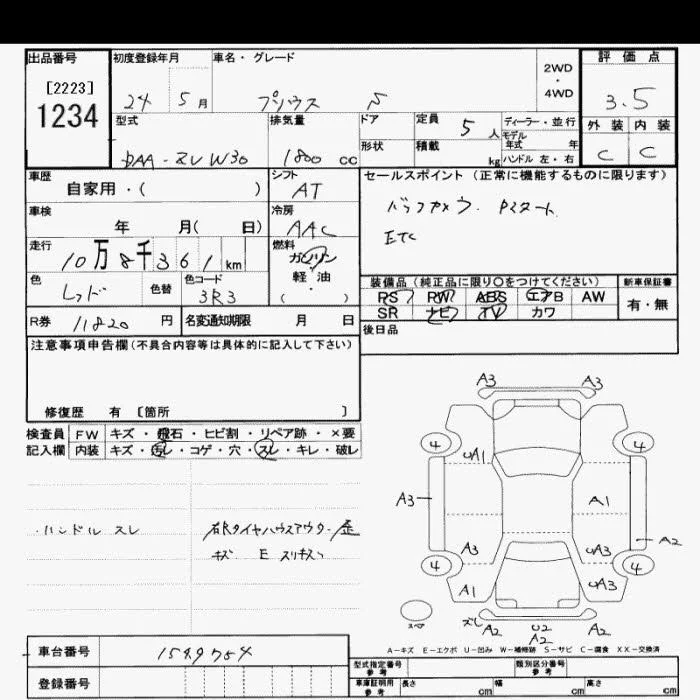 出品番号 初度登録年月 車名・グレード 2WD・4WD 評価点
[2223] 24 5月 プリウス S 3.5
1234
型式 排気量 ドア 定員 5人 ディーラー・並行 外装 内装
DAA-ZVW30 1800 cc 形状 積載 kg モデル年式 年 C C
ハンドル 左・右
車歴 シフト セールスポイント (正常に機能するものに限ります)
自家用・( ) AT バックカメラ. Pスタート
車検 冷房 ETC
年 月( 日) AAC
走行 燃料
10万8千361km ガソリン
軽・油
( )
色 色替 色コード 装備品 (純正品に限り○をつけてください) 新車保証書
レッド 3R3 PS PW ABS エアB AW 有・無
SR ナビ TV カワ
R券 11820 円 名変通知期限 月 日 後日品
注意事項申告欄 (不具合内容等は具体的に記入して下さい)
修復歴 有 [箇所 ]
検査員 FW キズ・飛石・ヒビ割・リペア跡・×要
記入欄 内装 キズ・汚レ・コゲ・穴・スレ・キレ・破レ
・ハンドル スレ
右Rタイヤハウスアウター歪
キズ E スリキズ
A3 A3
4 4
uA1
A3 A1
A3 uA3 A2
4 4
A1 uA3
スペア ズレ A2 U2 A2
A2
A-キズ E-エクボ U-凹み W-補修跡 S-サビ C-腐食 XX-交換済
車台番号 1549784
登録番号
型式指定番号 参考 類別区分番号 参考
車庫証明用 参考 長さ cm 幅 cm 高さ cm